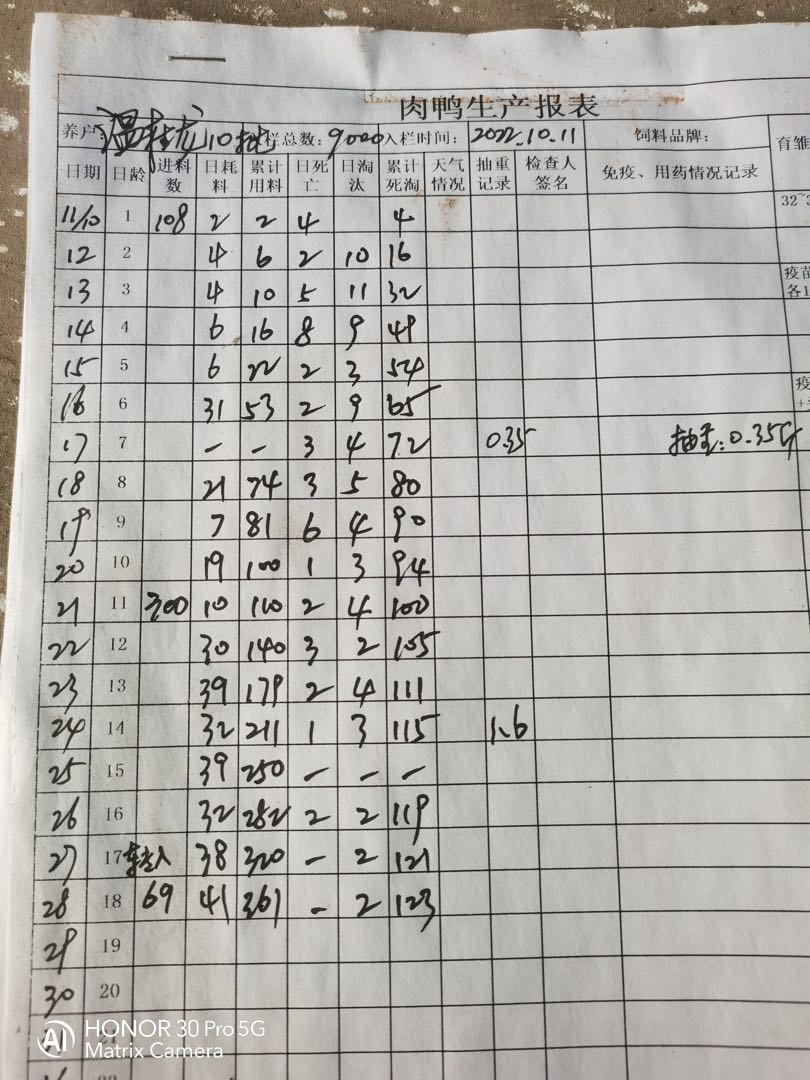 肉鸭生产报表
养户: 温桂龙10批 栏总数: 9000 入栏时间: 2022.10.11 饲料品牌: 育雏
日期 日龄 进料数 日耗料 累计用料 日死亡 日淘汰 累计死淘 天气情况 抽重记录 检查人签名 免疫、用药情况记录
11/10 1 108 2 2 4 4 32~3
12 2 4 6 2 10 16
13 3 4 10 5 11 32 疫苗 各1
14 4 6 16 8 9 49
15 5 6 22 2 3 54
16 6 31 53 2 9 65 疫
17 7 - - 3 4 72 0.35 抽重:0.35斤
18 8 21 74 3 5 80
19 9 7 81 6 4 90
20 10 19 100 1 3 94
21 11 300 10 110 2 4 100
22 12 30 140 3 2 105
23 13 39 179 2 4 111
24 14 32 211 1 3 115 1.6
25 15 39 250 - - -
26 16 32 282 2 2 119
27 17 转入 38 320 - 2 121
28 18 69 41 361 - 2 123
29 19
30 20
HONOR 30 Pro 5G
AI Matrix Camera